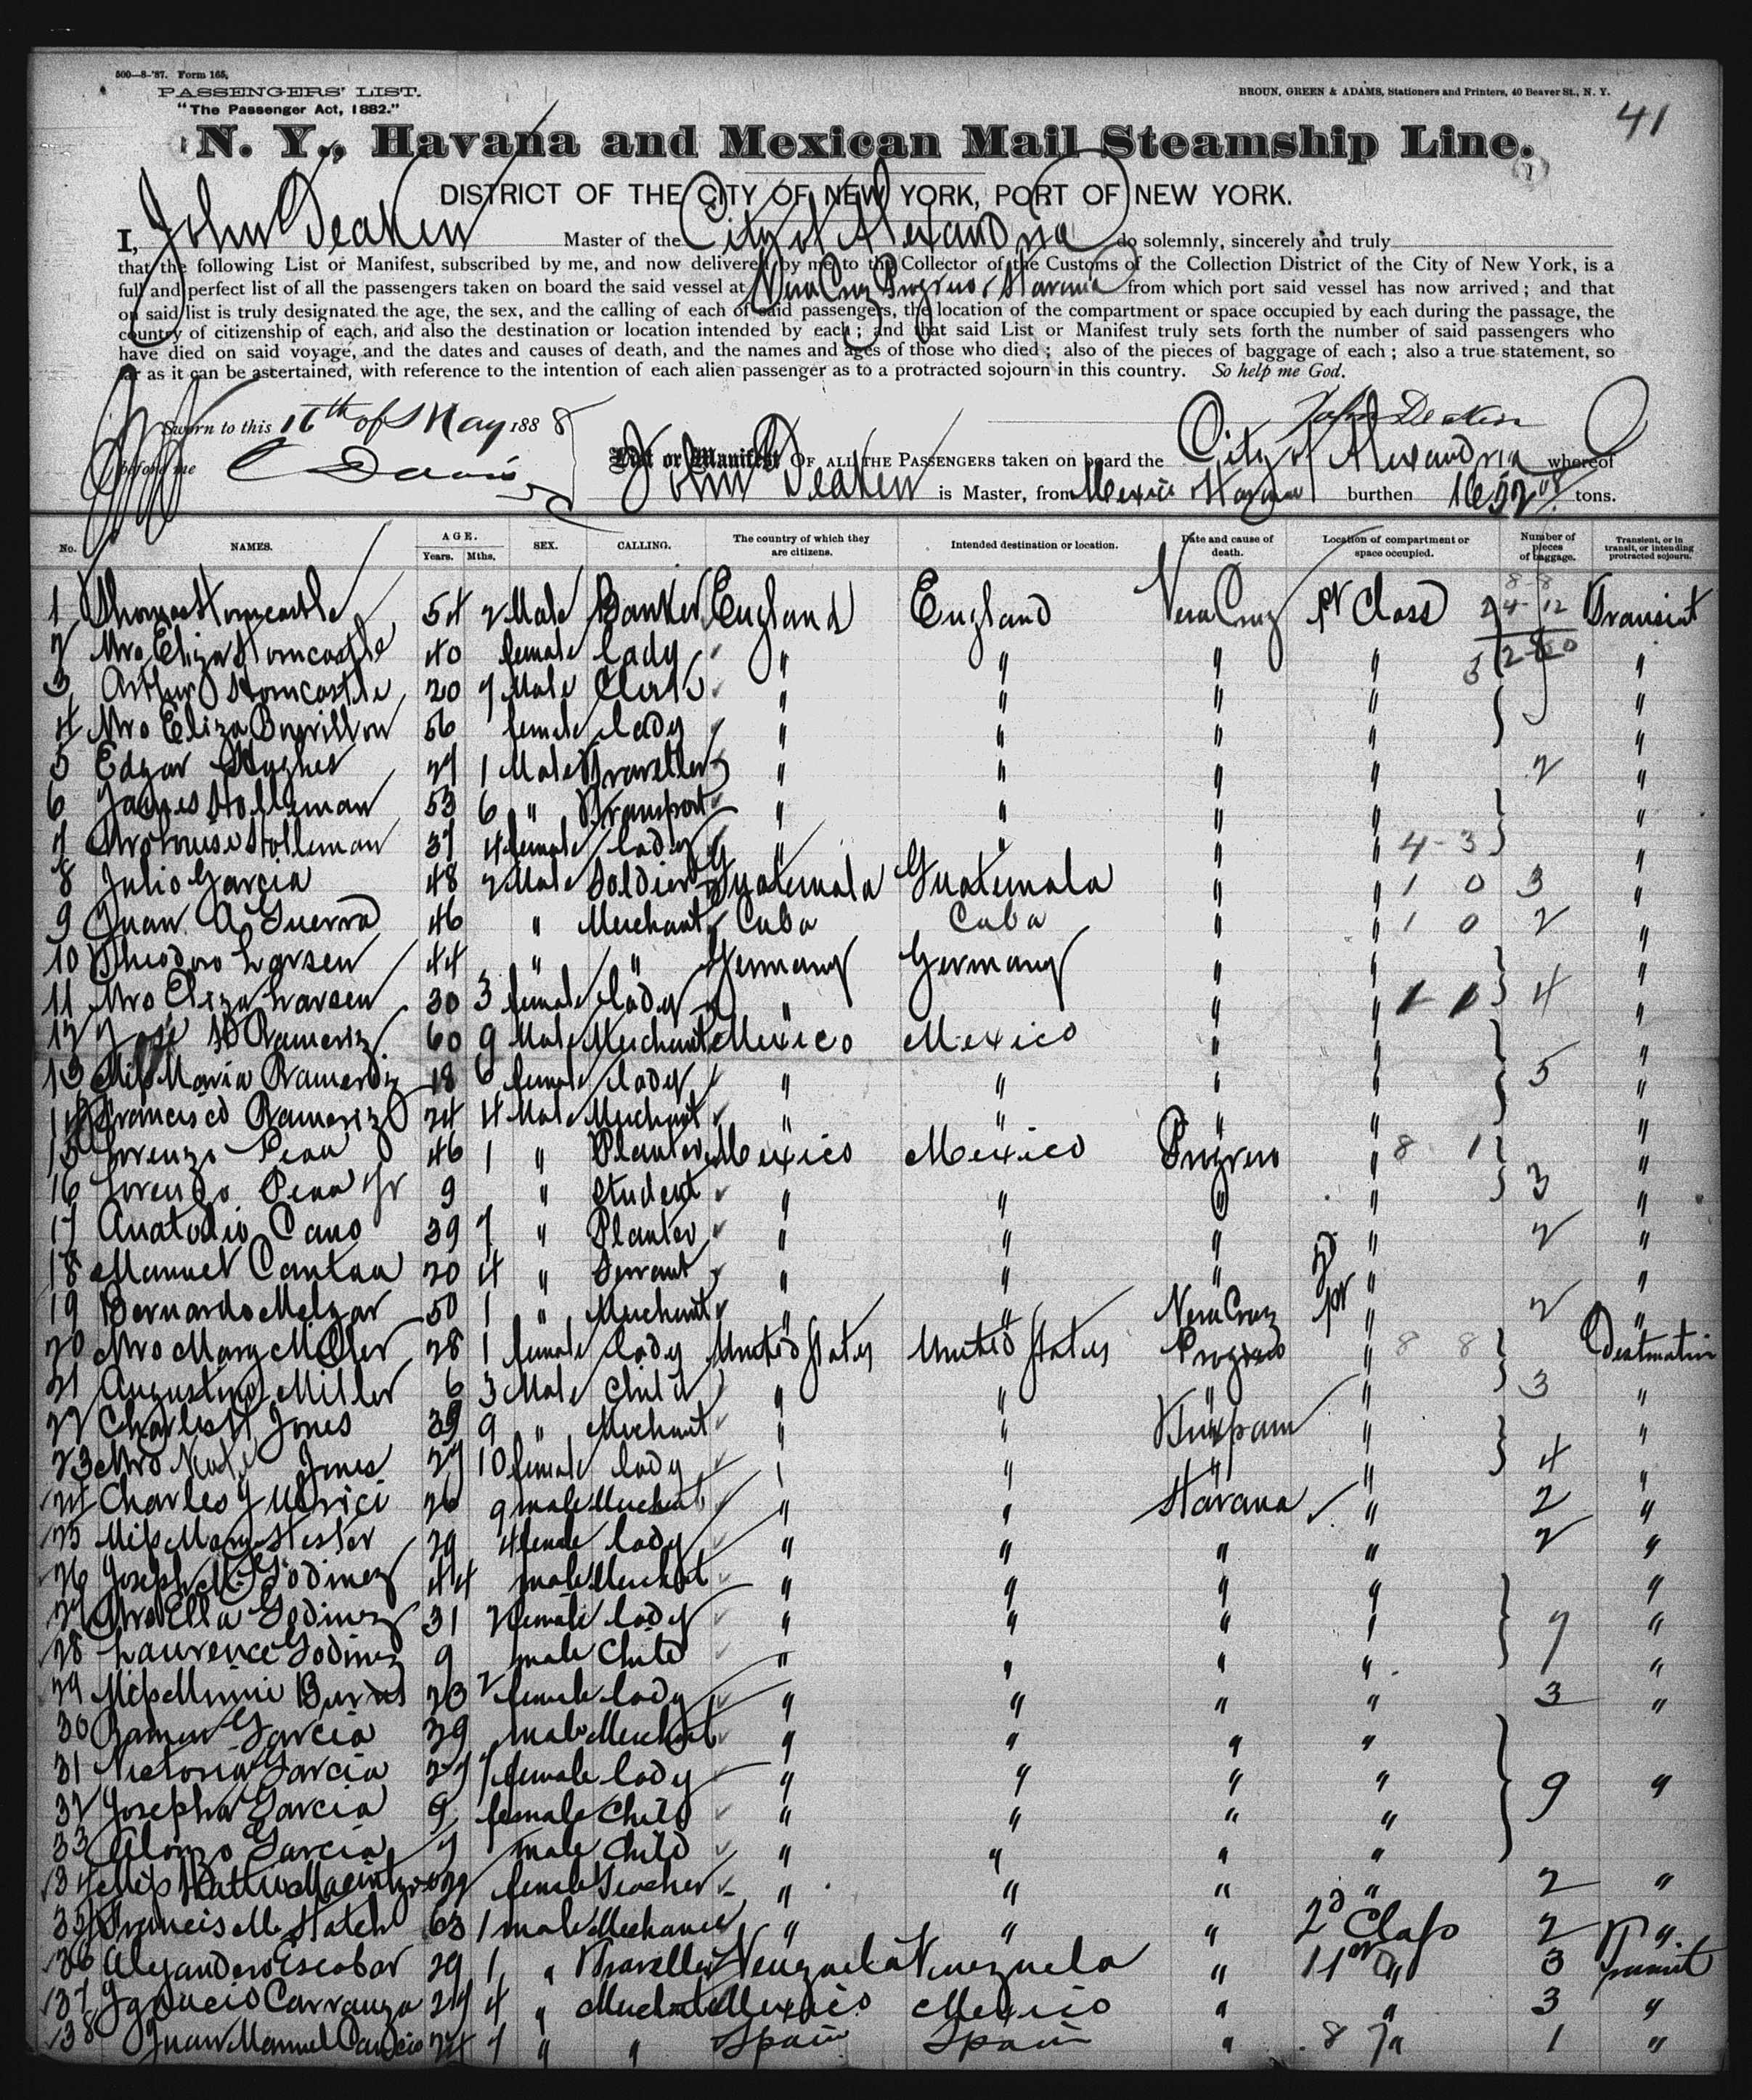 500—8-'87. Form 165.
PASSENGERS' LIST.
"The Passenger Act, 1882."
BROUN, GREEN & ADAMS, Stationers and Printers, 40 Beaver St., N. Y.
41
N. Y., Havana and Mexican Mail Steamship Line.
DISTRICT OF THE CITY OF NEW YORK, PORT OF NEW YORK.
I, John Deaken Master of the City of Alexandria do solemnly, sincerely and truly
that the following List or Manifest, subscribed by me, and now delivered by me to the Collector of the Customs of the Collection District of the City of New York, is a
full and perfect list of all the passengers taken on board the said vessel at Vera Cruz Progreso & Havana from which port said vessel has now arrived; and that
on said list is truly designated the age, the sex, and the calling of each of said passengers, the location of the compartment or space occupied by each during the passage, the
country of citizenship of each, and also the destination or location intended by each; and that said List or Manifest truly sets forth the number of said passengers who
have died on said voyage, and the dates and causes of death, and the names and ages of those who died; also of the pieces of baggage of each; also a true statement, so
far as it can be ascertained, with reference to the intention of each alien passenger as to a protracted sojourn in this country. So help me God.
Sworn to this 16th of May 1888 John Deaken
before me C Davis
List or Manifest OF ALL THE PASSENGERS taken on board the City of Alexandria whereof
John Deaken is Master, from Mexico Havana burthen 1652 08 tons.
No. NAMES. AGE. Years. Mths. SEX. CALLING. The country of which they are citizens. Intended destination or location. Date and cause of death. Location of compartment or space occupied. Number of pieces of baggage. Transient, or in transit, or intending protracted sojourn.
1 Thomas Horncastle 54 2 Male Banker England England Vera Cruz 1st Class Transit
2 Mrs Eliza Horncastle 40 female lady " " " " "
3 Arthur Horncastle 20 7 Male Clerk " " " " "
4 Mrs Eliza 56 female lady " " " " "
5 Edgar Hughes 27 1 Male Traveller " " " " 2 "
6 James Holleman 53 6 " " " " " "
7 Mrs Louise Holleman 37 4 female lady " " " " 4-3 "
8 Julio Garcia 48 2 Male Soldier Guatemala Guatemala " " 1 0 3 "
9 Juan A Guerra 46 " Merchant Cuba Cuba " " 1 0 2 "
10 Theodoro Larsen 44 " " Germany Germany " " "
11 Mrs Eliza Larsen 30 3 female lady " " " " 1 1 4 "
12 Jose Rameriz 60 9 Male Merchant Mexico Mexico " " "
13 Miss Maria Rameriz 18 6 female lady " " " " 5 "
14 Francisco Rameriz 24 4 Male Merchant " " " " "
15 Lorenzo Pena 46 1 " Planter Mexico Mexico Progreso " 8 1 "
16 Lorenzo Pena Jr 9 " Student " " " " 3 "
17 Anatolio Cano 39 7 " Planter " " " " 2 "
18 Manuel 20 4 " Servant " " " 2d " "
19 Bernardo Melgar 50 1 " Merchant " " Vera Cruz 1st " 2 "
20 Mrs Mary Miller 28 1 female lady United States United States Progreso " 8 8 Destination
21 Augustus Miller 6 3 Male Child " " " " 3 "
22 Charles H Jones 39 9 " Merchant " " Tuxpam " "
23 Mrs Kate Jones 27 10 female lady " " " " 4 "
24 Charles J Ulrici 26 9 male Merchant " " Havana " 2 "
25 Miss Mary Hester 29 4 female lady " " " " 2 "
26 Joseph M Godinez 44 male Merchant " " " " "
27 Mrs Ella Godinez 31 2 female lady " " " " 7 "
28 Laurence Godinez 9 male Child " " " " "
29 Miss Minnie 23 2 female lady " " " " 3 "
30 Ramon Garcia 39 male Merchant " " " "
31 Victoria Garcia 27 7 female lady " " " " "
32 Josepha Garcia 9 female Child " " " " 9
33 Alonzo Garcia 7 male Child " " " "
34 Miss Hattie female Teacher " " " " 2 "
35 Francis M Hatch 63 1 male Mechanic " " " 2d Class 2 "
36 Alejandro Escobar 29 1 " Traveller Venezuela Venezuela " 1st " 3 Transit
37 Ignacio Carranza 27 4 " Merchant Mexico Mexico " " 3 "
38 Juan Manuel 24 7 " " Spain Spain " 8 7 " 1 "